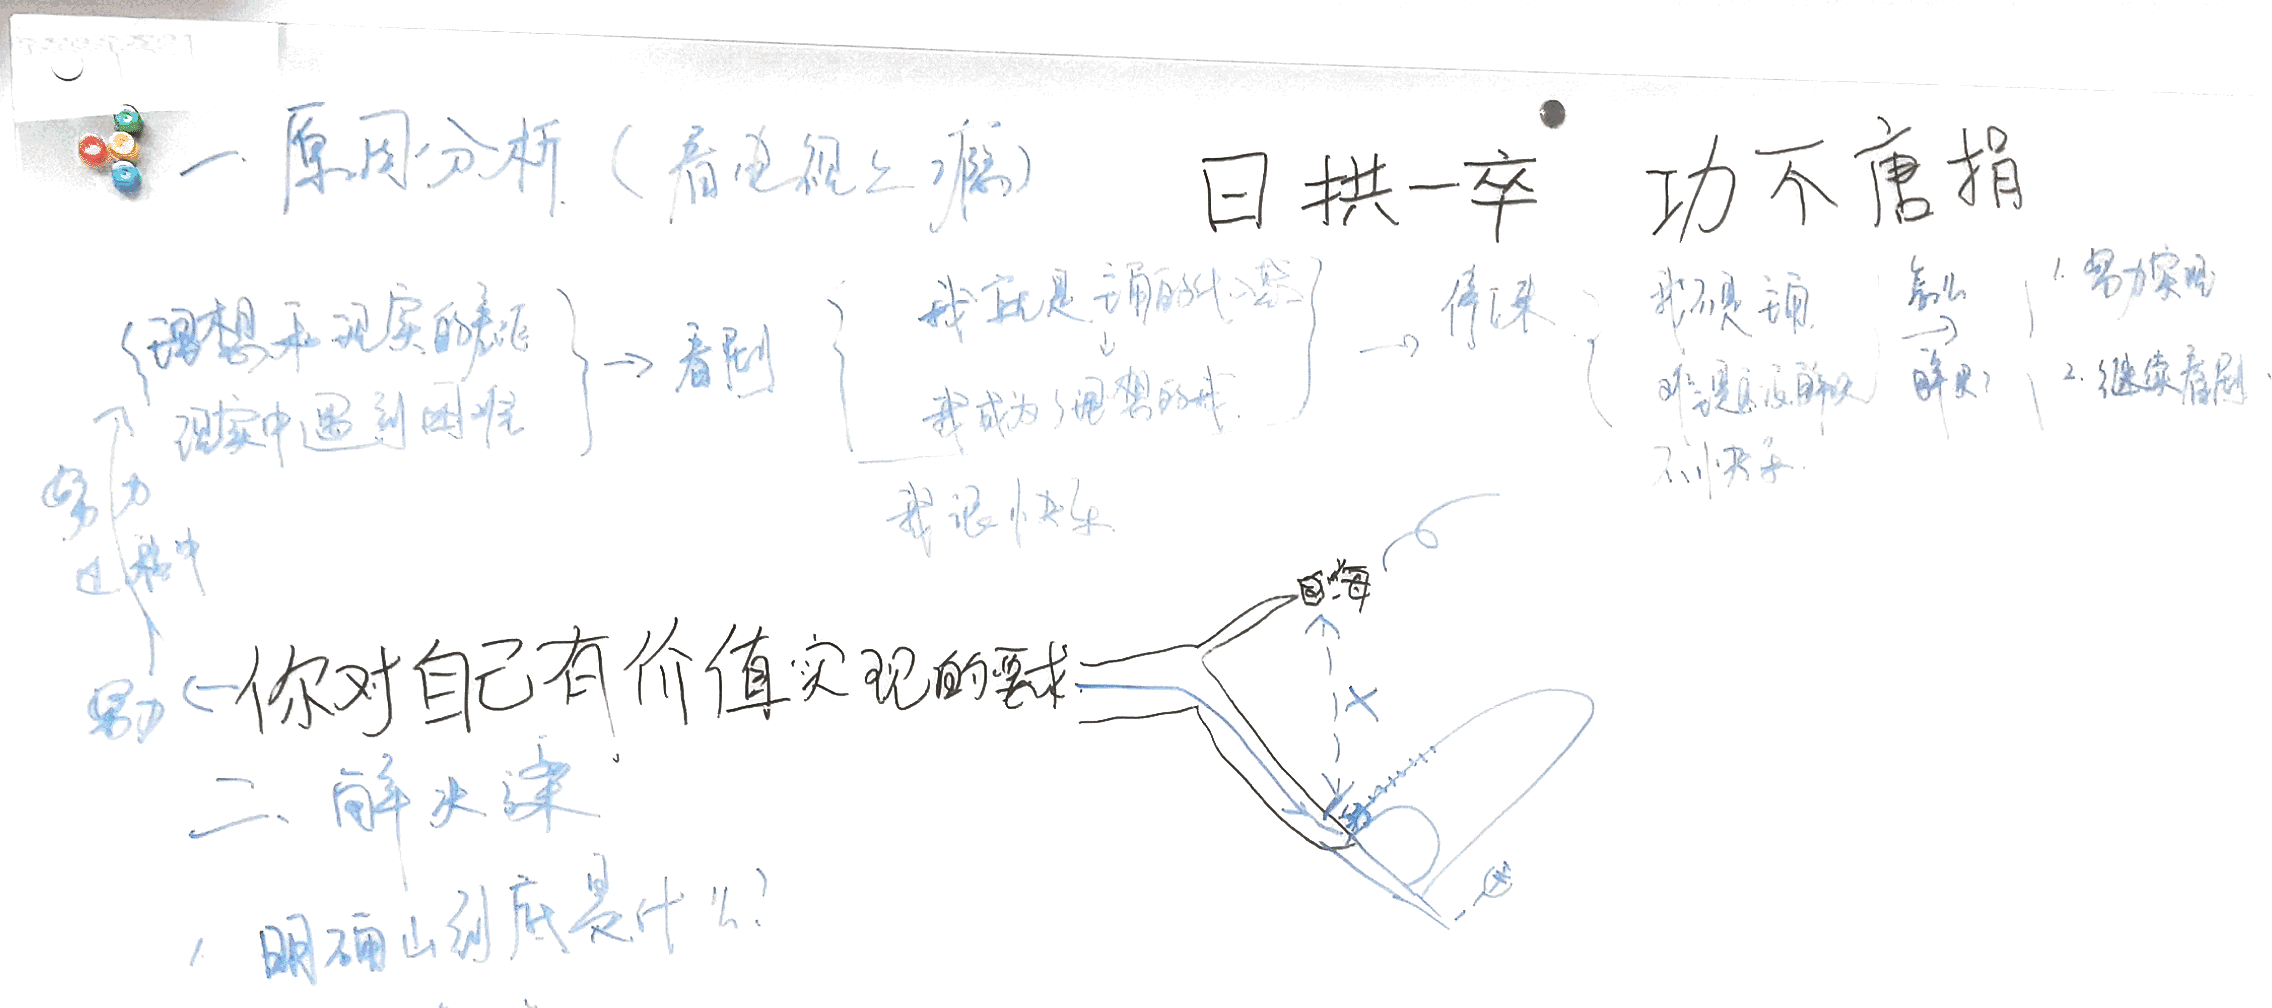 一. 原因分析（看电视上瘾）
日拱一卒 功不唐捐
理想和现实的差距
现实中遇到困难
→ 看剧
我就是主角的代入感
↓
我成为了理想的我
我很快乐
→ 停下来
我不是主角
难题还没解决
不快乐
怎么
→
解决?
1. 努力实现
2. 继续看剧.
努力
过程中
努力 ← 你对自己有价值实现的要求
二、解决
1. 明确山到底是什么?